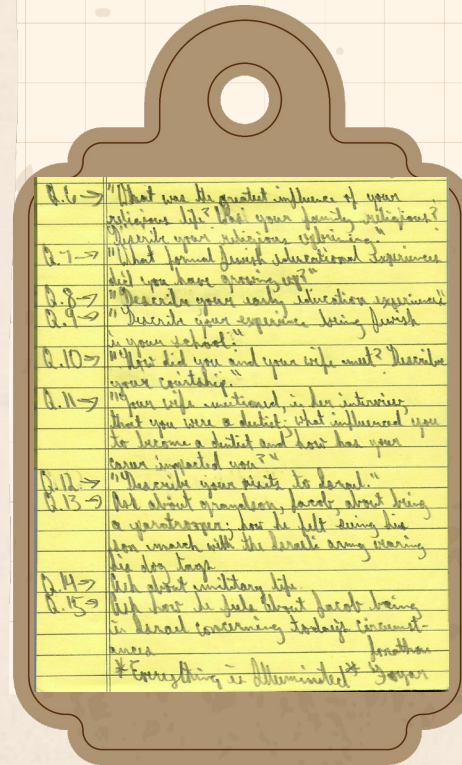 Q.6→ "What was the greatest influence of your
religious life? Was your family religious?
Describe your religious upbringing."
Q.7→ "What formal Jewish educational experiences
did you have growing up?"
Q.8→ "Describe your early education experiences"
Q.9→ "Describe your experience being Jewish
in your school."
Q.10→ "How did you and your wife meet? Describe
your courtship."
Q.11→ "Your wife mentioned, in her interview,
that you were a dentist; what influenced you
to become a dentist and how has your
career impacted you?"
Q.12→ "Describe your visits to Israel."
Q.13→ Ask about grandson, Jacob, about being
a paratrooper; how he felt seeing his
son march with the Israeli army wearing
his dog tags.
Q.14→ Ask about military life.
Q.15→ Ask how he feels about Jacob being
in Israel concerning today's circumst-
ances Jonathan
*Everything is Illuminated*